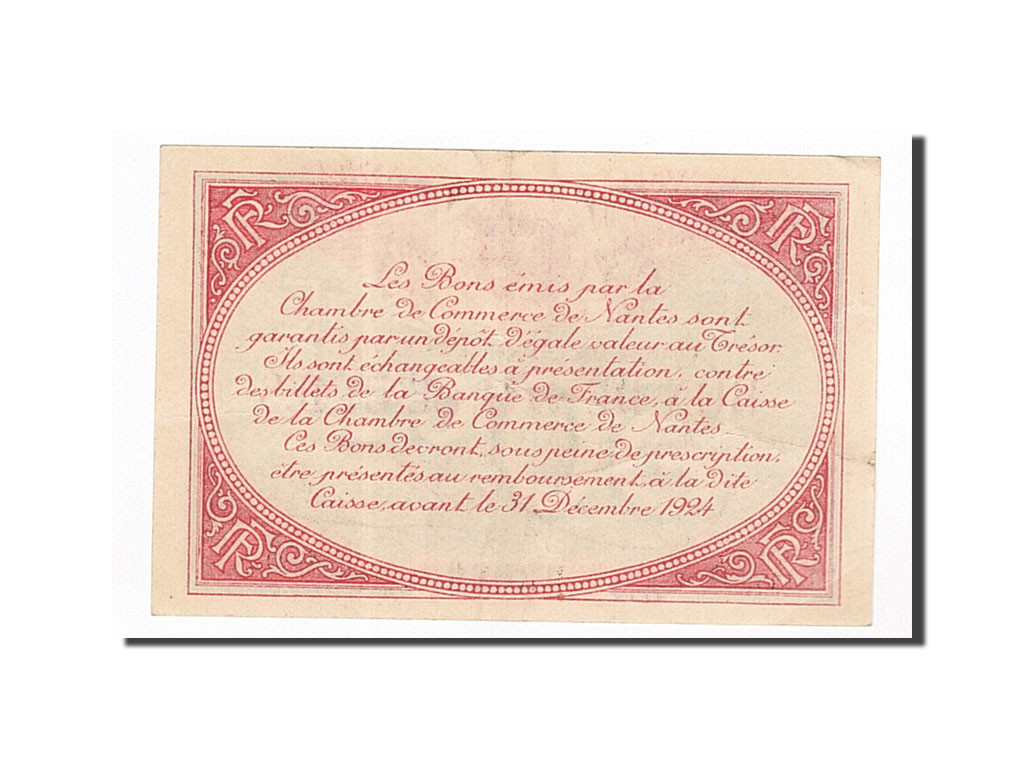 Les Bons émis par la
Chambre de Commerce de Nantes sont
garantis par un dépôt d'égale valeur au Trésor.
Ils sont échangeables à présentation, contre
des billets de la Banque de France, à la Caisse
de la Chambre de Commerce de Nantes.
Ces Bons devront, sous peine de prescription,
être présentés au remboursement, à la dite
Caisse, avant le 31 Décembre 1924
RF
RF
RF
RF